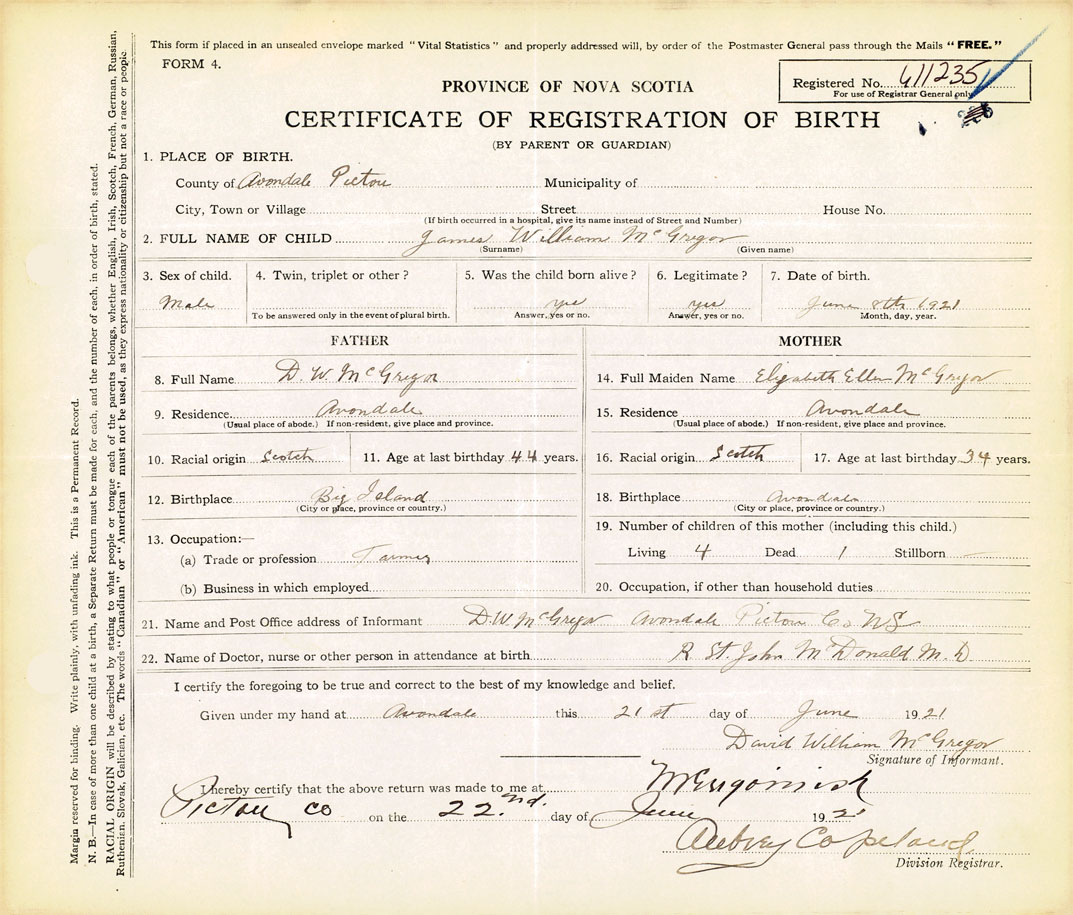 This form if placed in an unsealed envelope marked "Vital Statistics" and properly addressed will, by order of the Postmaster General pass through the Mails "FREE."
FORM 4.
Registered No. 411235
For use of Registrar General only
PROVINCE OF NOVA SCOTIA
CERTIFICATE OF REGISTRATION OF BIRTH
(BY PARENT OR GUARDIAN)
1. PLACE OF BIRTH.
County of Avondale Pictou Municipality of
City, Town or Village Street House No.
(If birth occurred in a hospital, give its name instead of Street and Number)
2. FULL NAME OF CHILD James William McGregor
(Surname) (Given name)
3. Sex of child. 4. Twin, triplet or other? 5. Was the child born alive? 6. Legitimate? 7. Date of birth.
Male yes yes June 8th 1921
To be answered only in the event of plural birth. Answer, yes or no. Answer, yes or no. Month, day, year.
FATHER MOTHER
8. Full Name D. W. McGregor 14. Full Maiden Name Elizabeth Ellen McGregor
9. Residence Avondale 15. Residence Avondale
(Usual place of abode.) If non-resident, give place and province. (Usual place of abode.) If non-resident, give place and province.
10. Racial origin Scotch 11. Age at last birthday 44 years. 16. Racial origin Scotch 17. Age at last birthday 34 years.
12. Birthplace Big Island 18. Birthplace Avondale
(City or place, province or country.) (City or place, province or country.)
19. Number of children of this mother (including this child.)
13. Occupation:—
(a) Trade or profession Farmer Living 4 Dead 1 Stillborn —
(b) Business in which employed 20. Occupation, if other than household duties
21. Name and Post Office address of Informant D.W. McGregor Avondale Pictou Co NS
22. Name of Doctor, nurse or other person in attendance at birth R St. John McDonald M.D
I certify the foregoing to be true and correct to the best of my knowledge and belief.
Given under my hand at Avondale this 21st day of June 1921
David William McGregor
Signature of Informant.
I hereby certify that the above return was made to me at Merigomish
Pictou Co on the 22nd. day of June 1921
Aubrey Copeland
Division Registrar.
Margin reserved for binding. Write plainly, with unfading ink. This is a Permanent Record.
N. B.—In case of more than one child at a birth, a Separate Return must be made for each, and the number of each, in order of birth, stated.
RACIAL ORIGIN will be described by stating to what people or tongue each of the parents belongs, whether English, Irish, Scotch, French, German, Russian,
Ruthenian, Slovak, Galician, etc. The words "Canadian" or "American" must not be used, as they express nationality or citizenship but not a race or people.